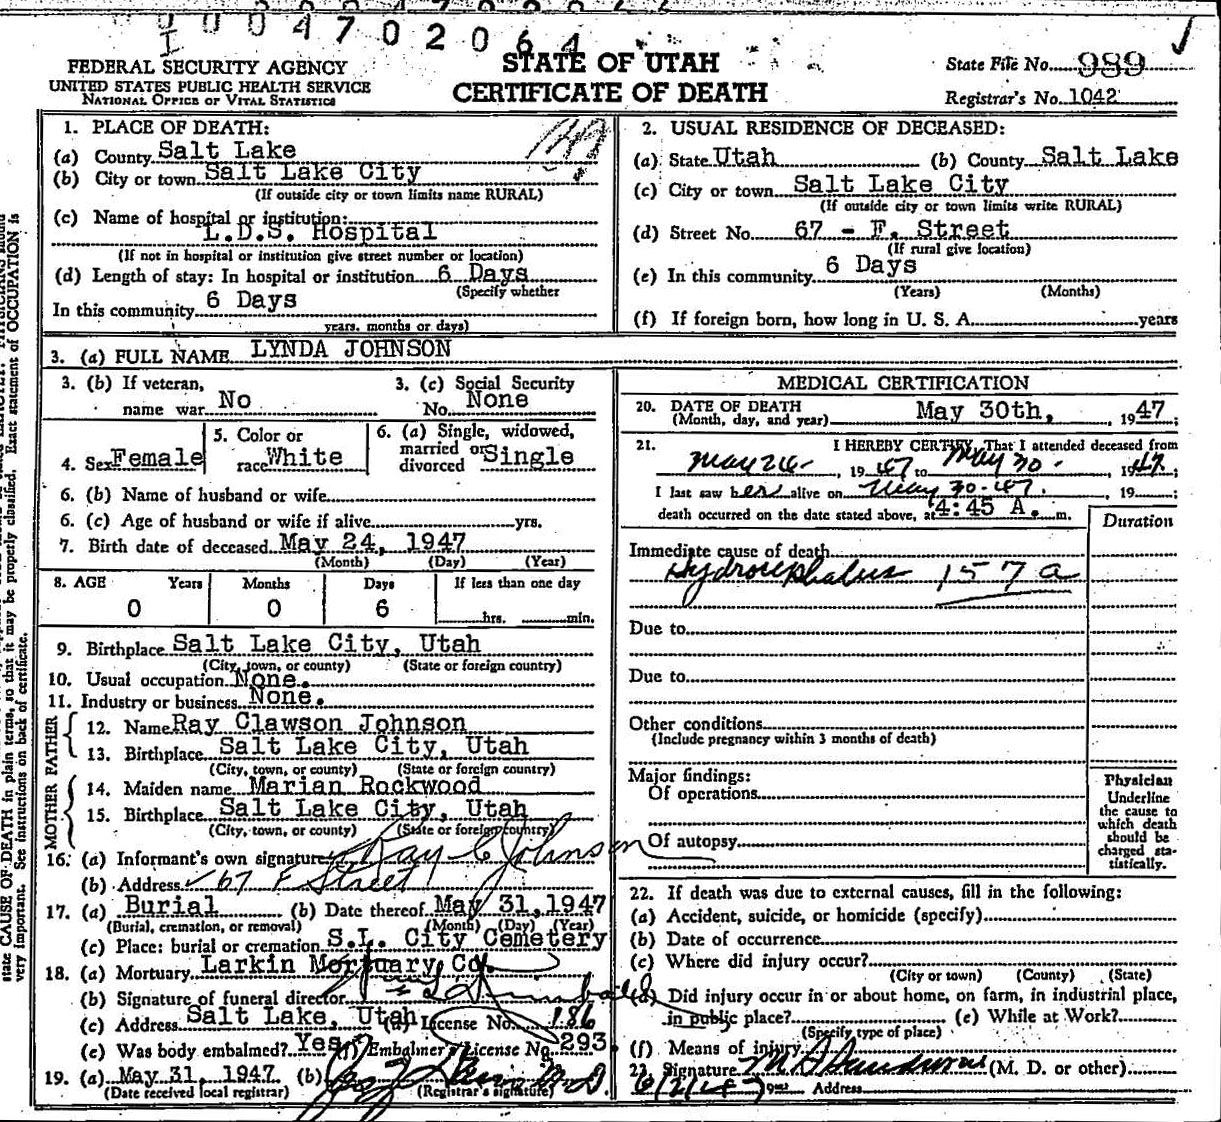 0004702064
FEDERAL SECURITY AGENCY
UNITED STATES PUBLIC HEALTH SERVICE
NATIONAL OFFICE OF VITAL STATISTICS
STATE OF UTAH
CERTIFICATE OF DEATH
State File No. 989
Registrar's No. 1042
1. PLACE OF DEATH:
(a) County Salt Lake
(b) City or town Salt Lake City
(If outside city or town limits name RURAL)
(c) Name of hospital or institution:
L.D.S. Hospital
(If not in hospital or institution give street number or location)
(d) Length of stay: In hospital or institution 6 Days
(Specify whether
In this community 6 Days
years, months or days)
2. USUAL RESIDENCE OF DECEASED:
(a) State Utah (b) County Salt Lake
(c) City or town Salt Lake City
(If outside city or town limits write RURAL)
(d) Street No. 67 - F. Street
(If rural give location)
(e) In this community 6 Days
(Years) (Months)
(f) If foreign born, how long in U. S. A. years
3. (a) FULL NAME LYNDA JOHNSON
3. (b) If veteran,
name war No
3. (c) Social Security
No. None
4. Sex Female
5. Color or
race White
6. (a) Single, widowed,
married or
divorced Single
6. (b) Name of husband or wife
6. (c) Age of husband or wife if alive yrs.
7. Birth date of deceased May 24, 1947
(Month) (Day) (Year)
8. AGE Years Months Days If less than one day
0 0 6 hrs. min.
9. Birthplace Salt Lake City, Utah
(City, town, or county) (State or foreign country)
10. Usual occupation None.
11. Industry or business None.
FATHER
12. Name Ray Clawson Johnson
13. Birthplace Salt Lake City, Utah
(City, town, or county) (State or foreign country)
MOTHER
14. Maiden name Marian Rockwood
15. Birthplace Salt Lake City, Utah
(City, town, or county) (State or foreign country)
16. (a) Informant's own signature Ray C Johnson
(b) Address 67 F Street
17. (a) Burial (b) Date thereof May 31, 1947
(Burial, cremation, or removal) (Month) (Day) (Year)
(c) Place: burial or cremation S.L. City Cemetery
18. (a) Mortuary Larkin Mortuary Co.
(b) Signature of funeral director
(c) Address Salt Lake, Utah (d) License No. 186
(e) Was body embalmed? Yes (f) Embalmer's License No. 293
19. (a) May 31, 1947 (b)
(Date received local registrar) (Registrar's signature)
MEDICAL CERTIFICATION
20. DATE OF DEATH
(Month, day, and year) May 30th, 1947;
21. I HEREBY CERTIFY, That I attended deceased from
May 24 1947 to May 30 1947;
I last saw her alive on May 30-47, 19 ;
death occurred on the date stated above, at 4:45 A. m.
Duration
Immediate cause of death
Hydrocephalus 157a
Due to
Due to
Other conditions
(Include pregnancy within 3 months of death)
Major findings:
Of operations
Of autopsy
Physician
Underline
the cause to
which death
should be
charged sta-
tistically.
22. If death was due to external causes, fill in the following:
(a) Accident, suicide, or homicide (specify)
(b) Date of occurrence
(c) Where did injury occur?
(City or town) (County) (State)
(d) Did injury occur in or about home, on farm, in industrial place,
in public place? (e) While at Work?
(Specify type of place)
(f) Means of injury
23. Signature (M. D. or other)
6/2/47 Address
state CAUSE OF DEATH in plain terms, so that it may be properly classified. Exact statement of OCCUPATION is
very important. See instructions on back of certificate.